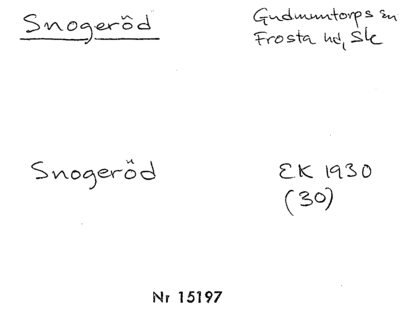 Snogeröd
Gudmuntorps sn
Frosta hd, Sk
Snogeröd
EK 1930
(30)
Nr 15197